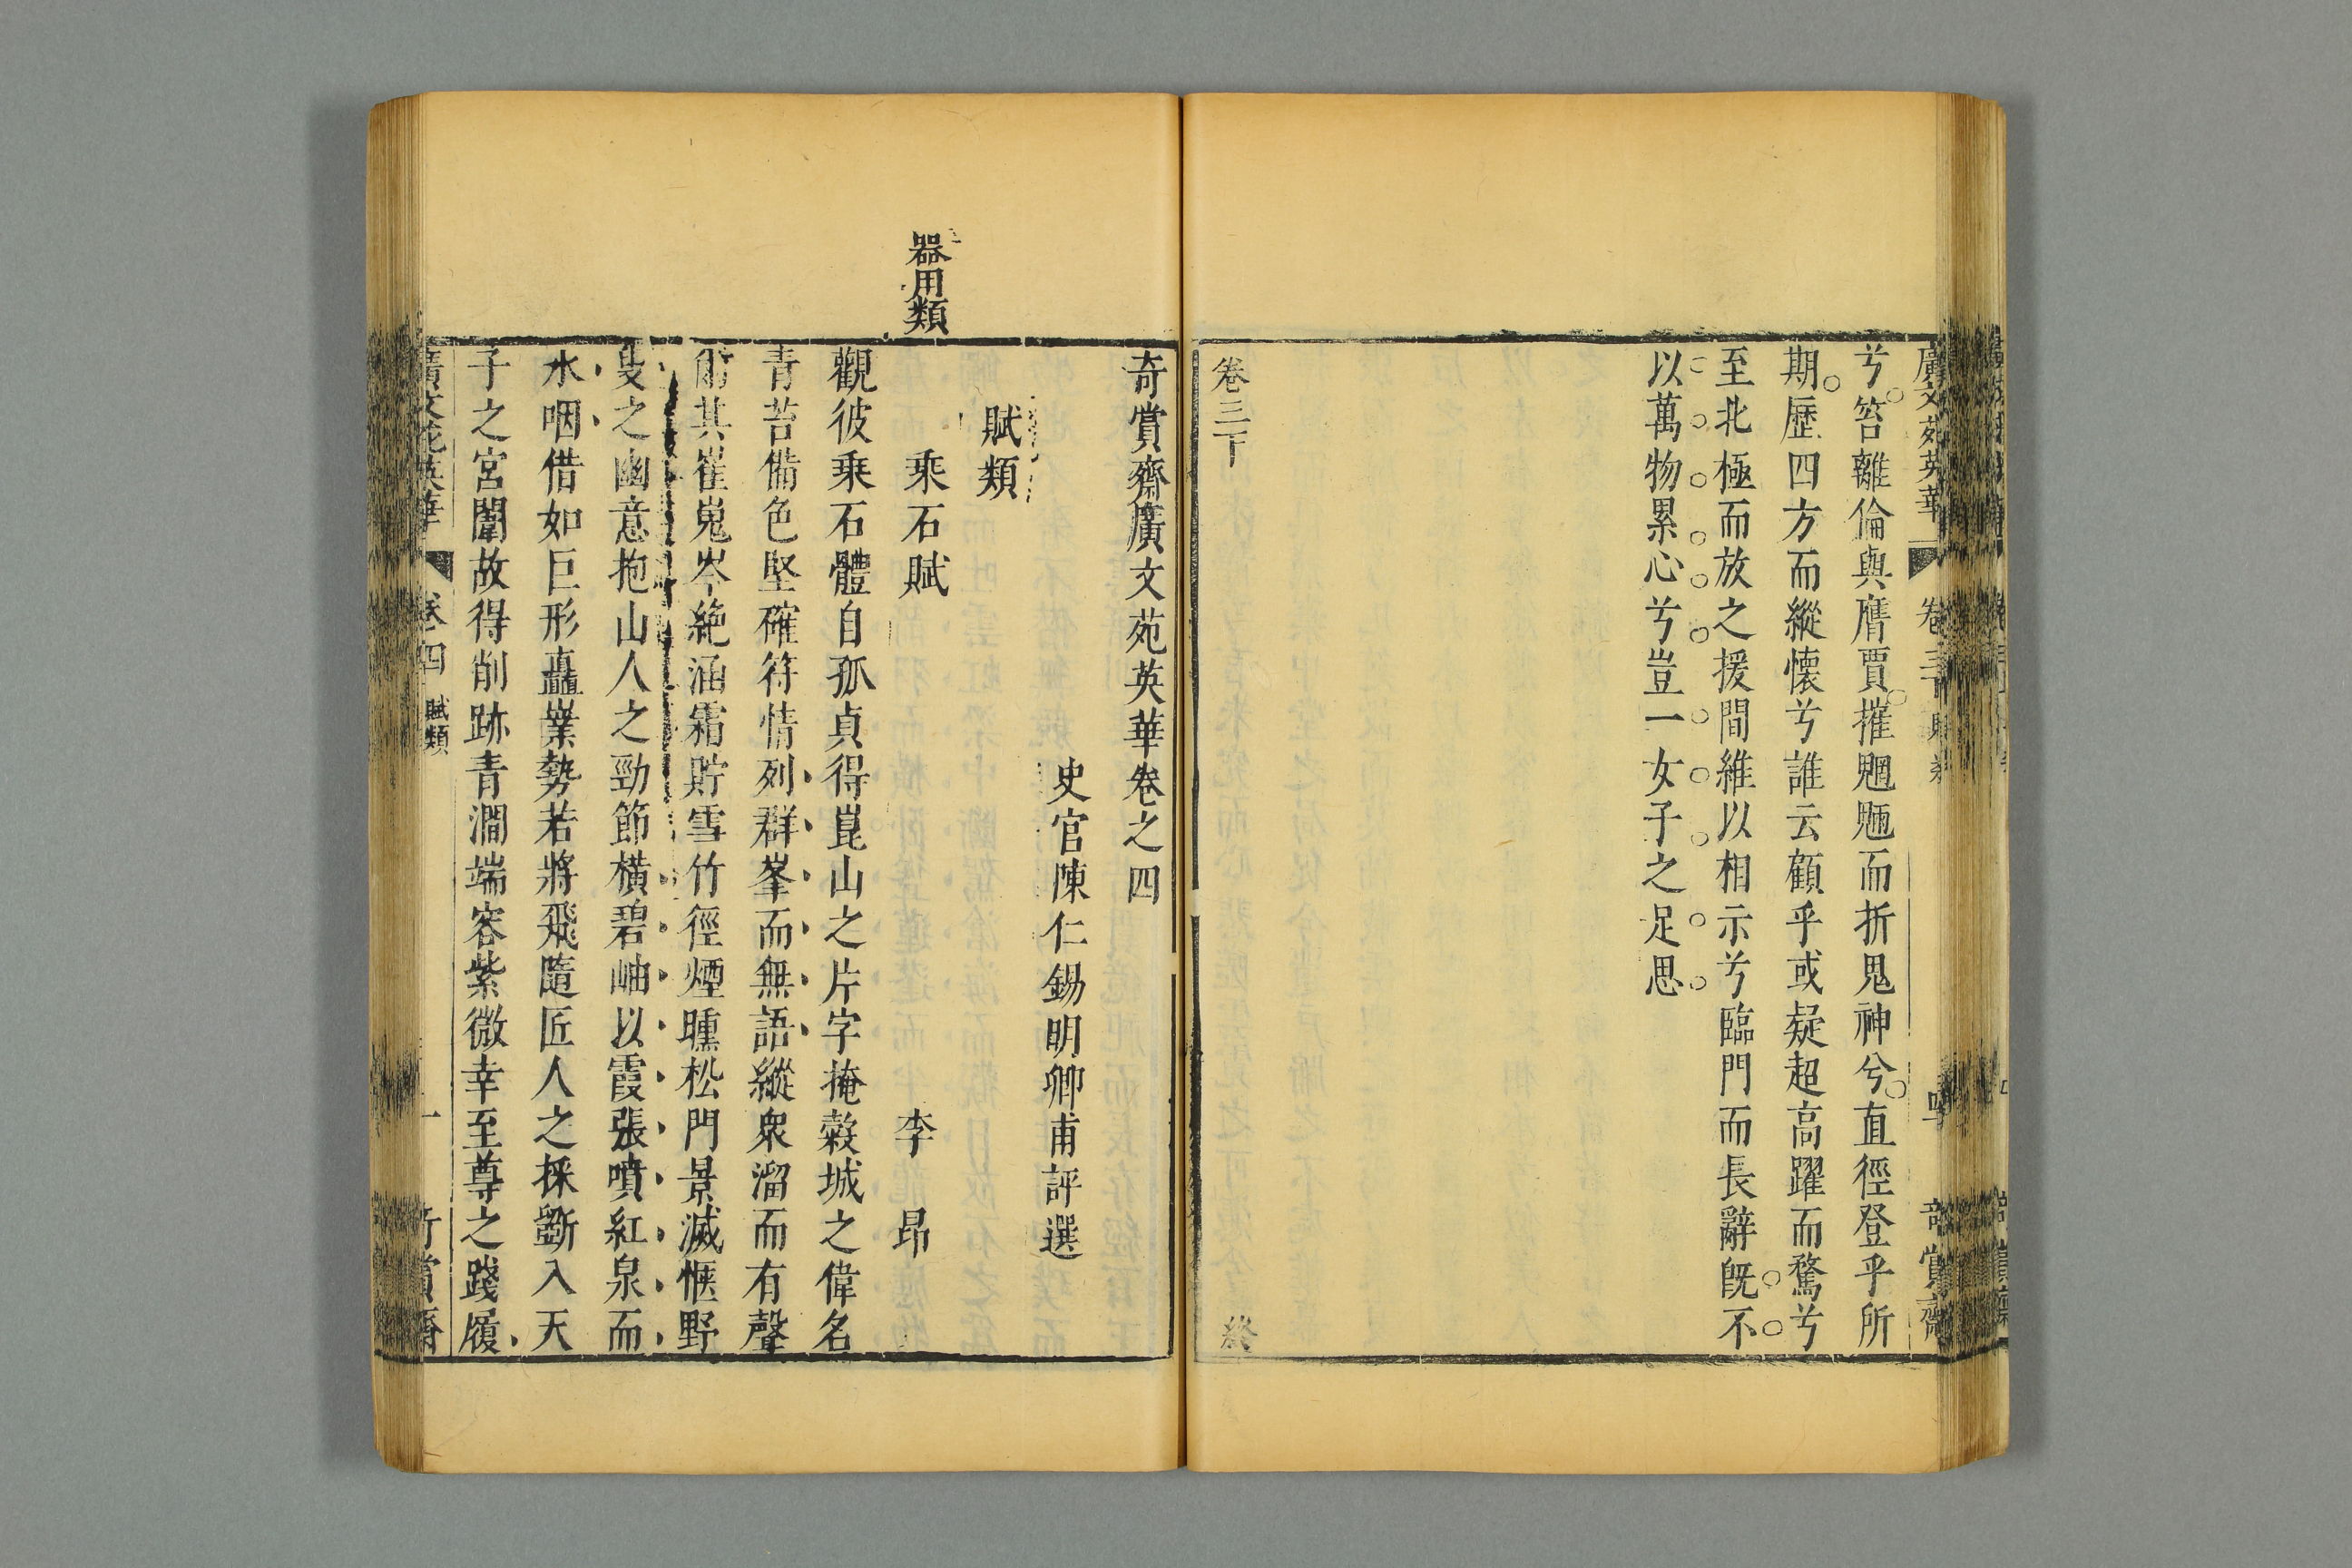 廣文苑英華 卷三下
兮笞離倫與鴈賈摧魍魎而折鬼神兮直徑登乎所
期歷四方而縱懷兮誰云顧乎或疑超高躍而騖兮
至北極而放之援間維以相示兮臨門而長辭旣不
以萬物累心兮豈一女子之足思
卷三下 終
奇賞齋廣文苑英華卷之四
史官陳仁錫明卿甫評選
賦類
器用類
乘石賦 李昂
觀彼乘石體自孤貞得崑山之片字掩穀城之偉名
青苔備色堅確符情列群峯而無語縱衆溜而有聲
其崔嵬岑絶涵霜貯雪竹徑煙曛松門景滅愜野
叟之幽意抱山人之勁節橫碧岫以霞張噴紅泉而
水咽借如巨形矗㠎勢若將飛隨匠人之採斵入天
子之宮闈故得削跡青澗端容紫微幸至尊之踐履
廣文苑英華 卷四 賦類 一 奇賞齋